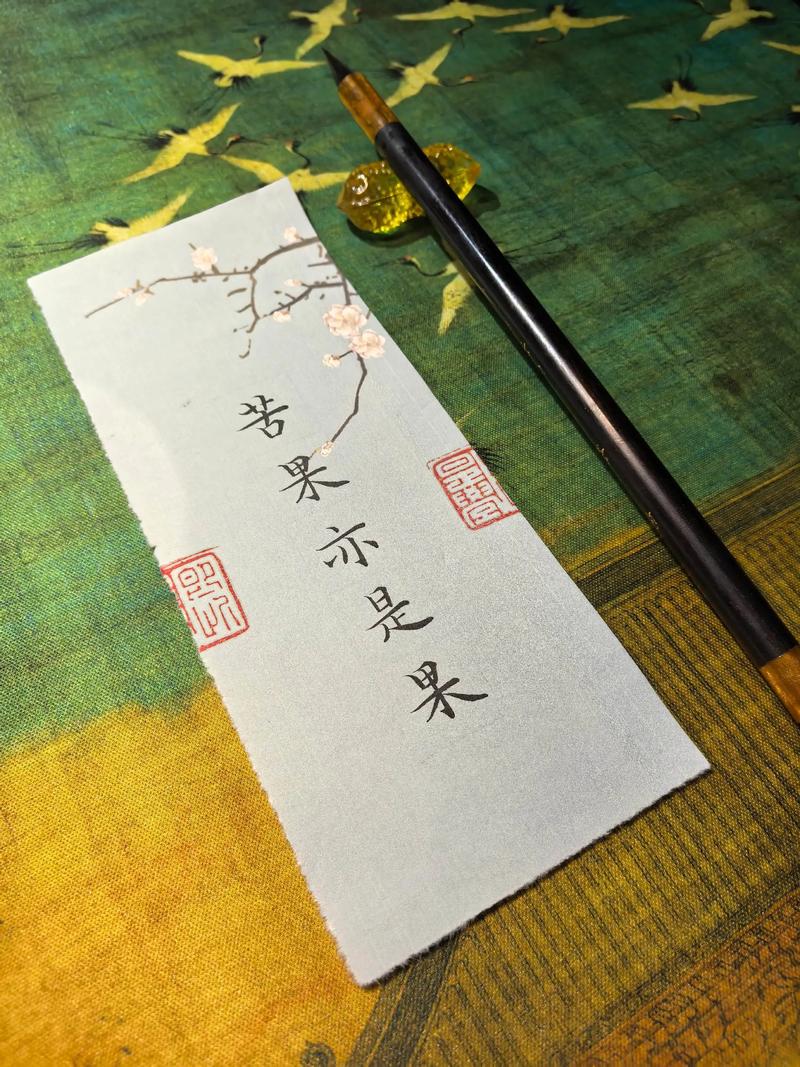 苦果亦是果